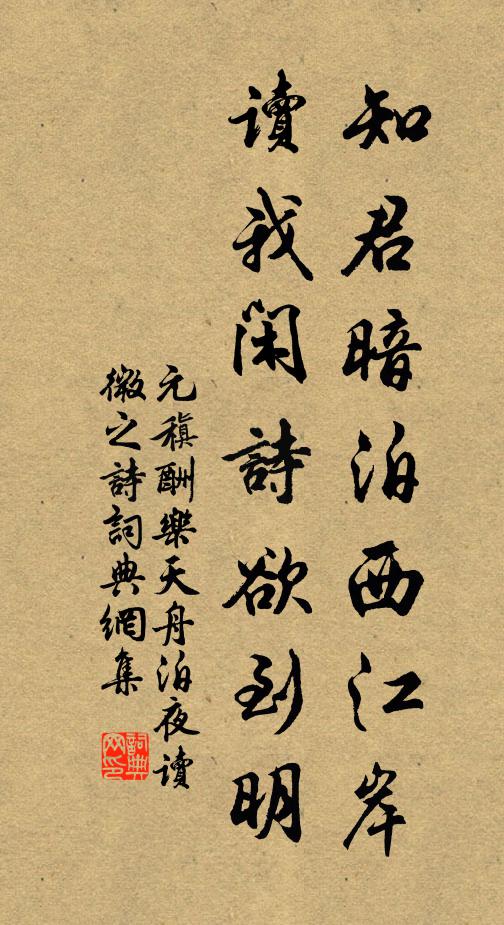 知君暗泊西江岸
讀我閑詩欲到明
元稹酬樂天舟泊夜讀
微之詩詞典網集
詞典
网印